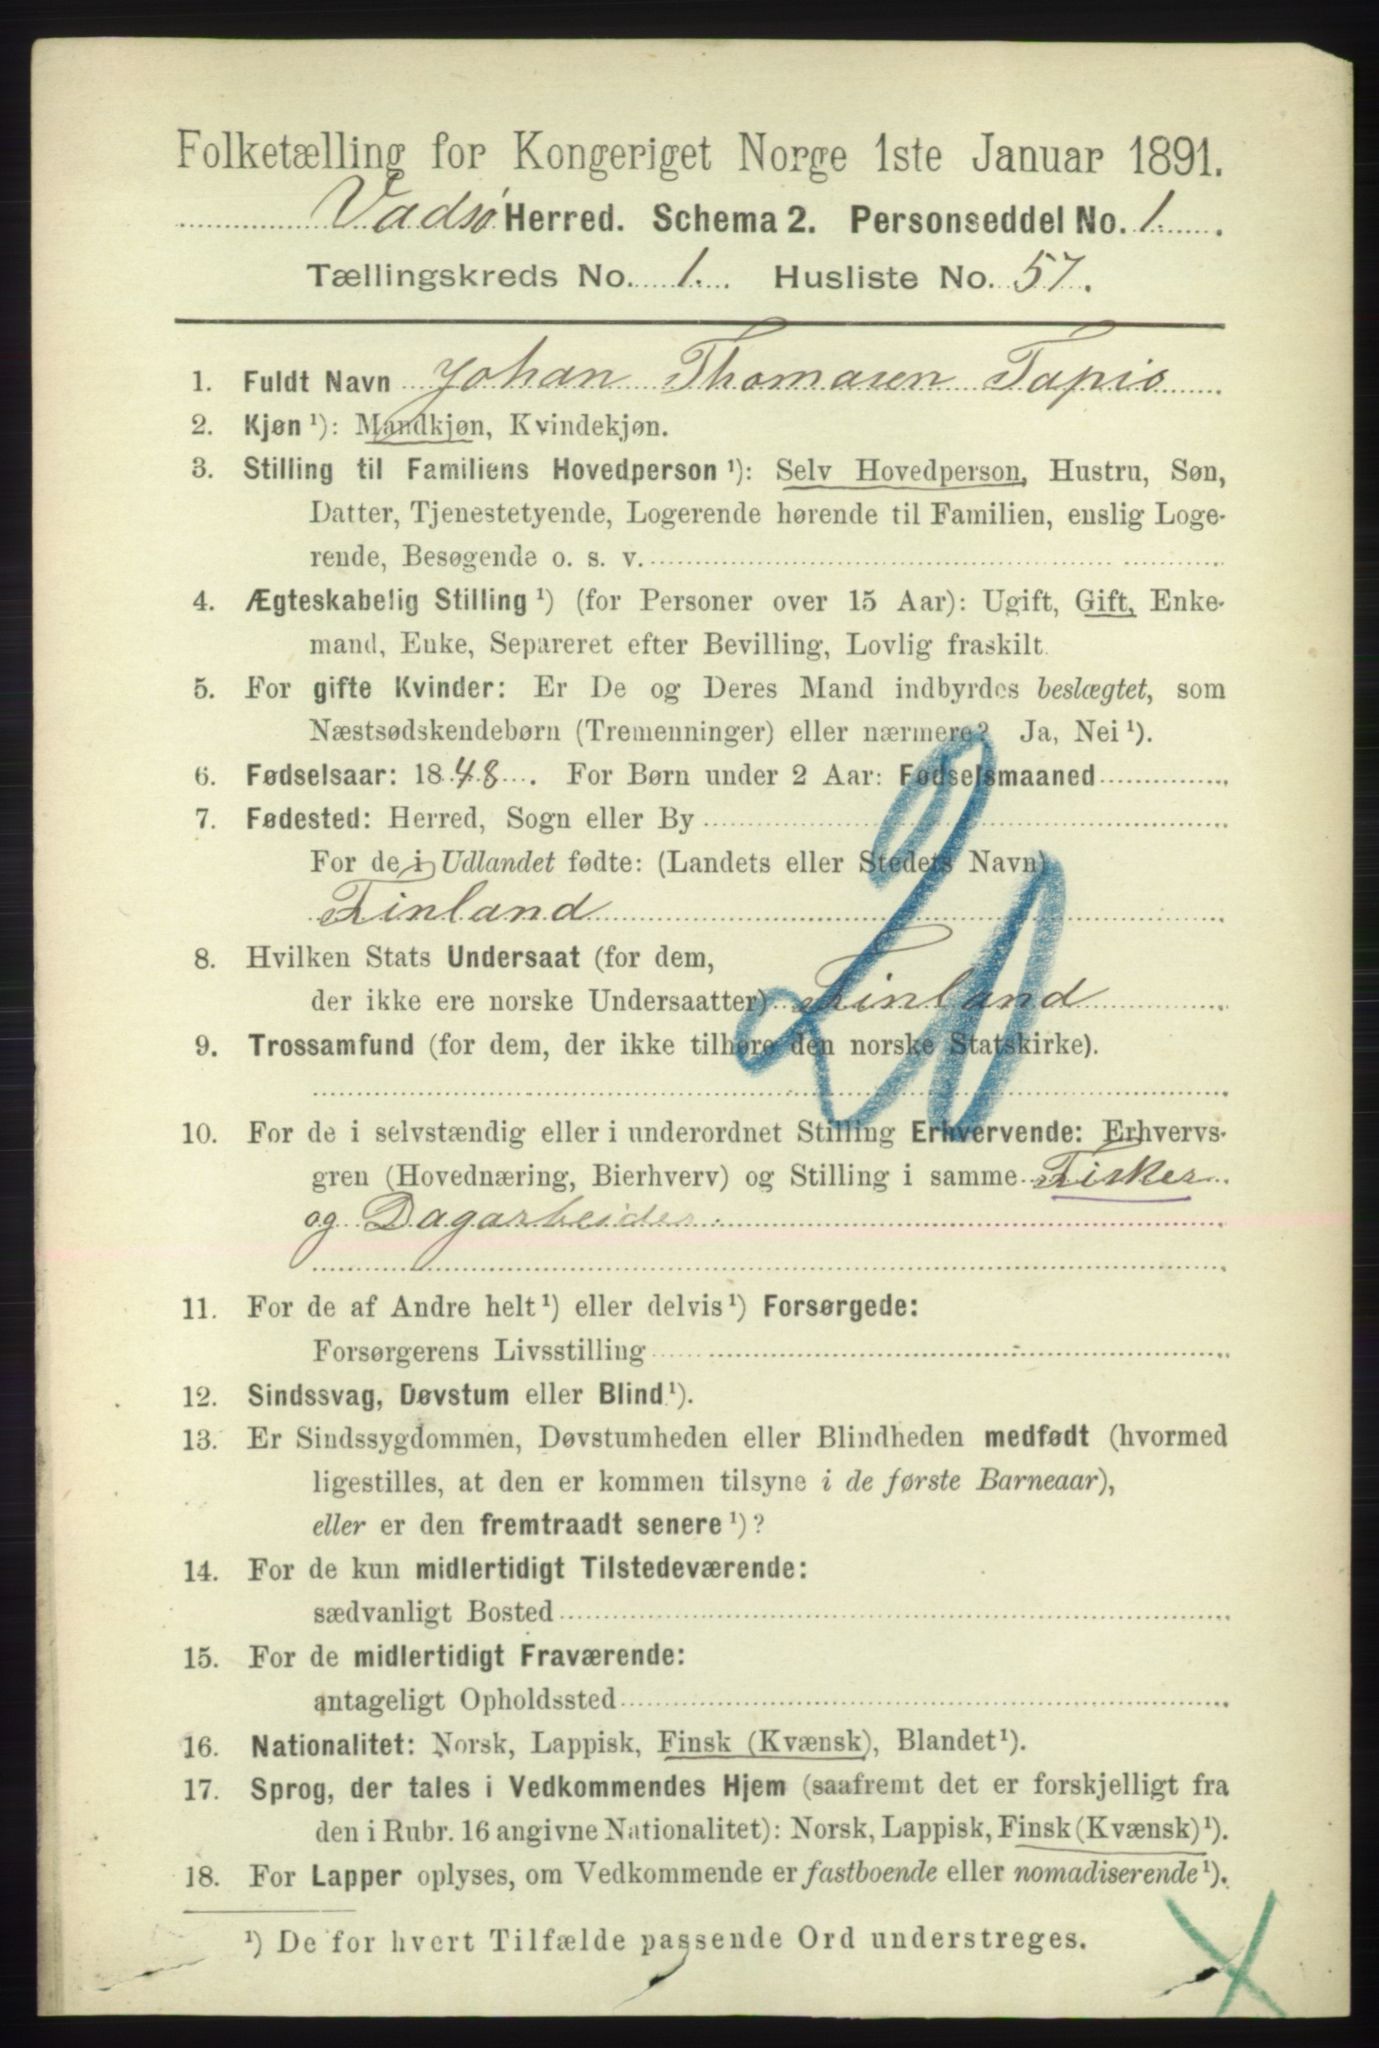 Folketælling for Kongeriget Norge 1ste Januar 1891.
Vadsø Herred. Schema 2. Personseddel No. 1.
Tællingskreds No. 1. Husliste No. 57.
1. Fuldt Navn Johan Thomasen Tapio
2. Kjøn ¹): Mandkjøn, Kvindekjøn.
3. Stilling til Familiens Hovedperson ¹): Selv Hovedperson, Hustru, Søn,
Datter, Tjenestetyende, Logerende hørende til Familien, enslig Loge-
rende, Besøgende o. s. v.
4. Ægteskabelig Stilling ¹) (for Personer over 15 Aar): Ugift, Gift, Enke-
mand, Enke, Separeret efter Bevilling, Lovlig fraskilt.
5. For gifte Kvinder: Er De og Deres Mand indbyrdes beslægtet, som
Næstsødskendebørn (Tremenninger) eller nærmere? Ja, Nei ¹).
6. Fødselsaar: 1848. For Børn under 2 Aar: Fødselsmaaned
7. Fødested: Herred, Sogn eller By
For de i Udlandet fødte: (Landets eller Stedets Navn)
Finland
20
8. Hvilken Stats Undersaat (for dem,
der ikke ere norske Undersaatter) Finland
9. Trossamfund (for dem, der ikke tilhøre den norske Statskirke).
10. For de i selvstændig eller i underordnet Stilling Erhvervende: Erhvervs-
gren (Hovednæring, Bierhverv) og Stilling i samme Fisker
og Dagarbeider
11. For de af Andre helt ¹) eller delvis ¹) Forsørgede:
Forsørgerens Livsstilling
12. Sindssvag, Døvstum eller Blind ¹).
13. Er Sindssygdommen, Døvstumheden eller Blindheden medfødt (hvormed
ligestilles, at den er kommen tilsyne i de første Barneaar),
eller er den fremtraadt senere ¹)?
14. For de kun midlertidigt Tilstedeværende:
sædvanligt Bosted
15. For de midlertidigt Fraværende:
antageligt Opholdssted
16. Nationalitet: Norsk, Lappisk, Finsk (Kvænsk), Blandet ¹).
17. Sprog, der tales i Vedkommendes Hjem (saafremt det er forskjelligt fra
den i Rubr. 16 angivne Nationalitet): Norsk, Lappisk, Finsk (Kvænsk) ¹).
18. For Lapper oplyses, om Vedkommende er fastboende eller nomadiserende ¹).
¹) De for hvert Tilfælde passende Ord understreges.